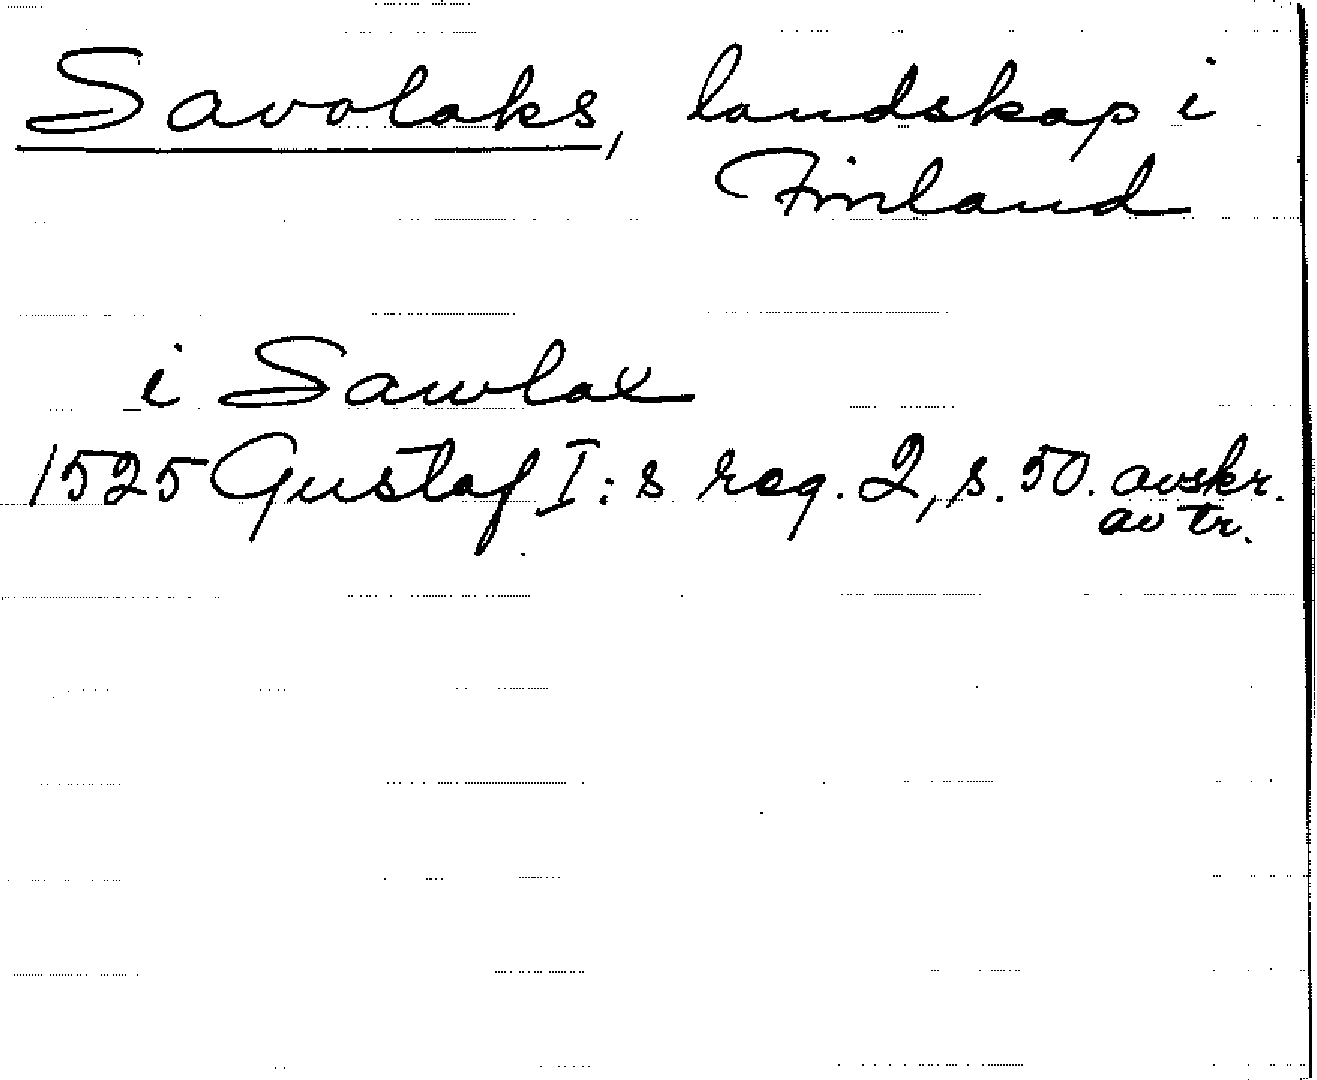 Savolaks, landskap i
Finland
i Sawlax
1525 Gustaf I:s reg. 2, s. 50. avskr.
av tr.